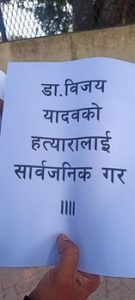 डा.विजय
यादवको
हत्यारालाई
सार्वजनिक गर
!!!!